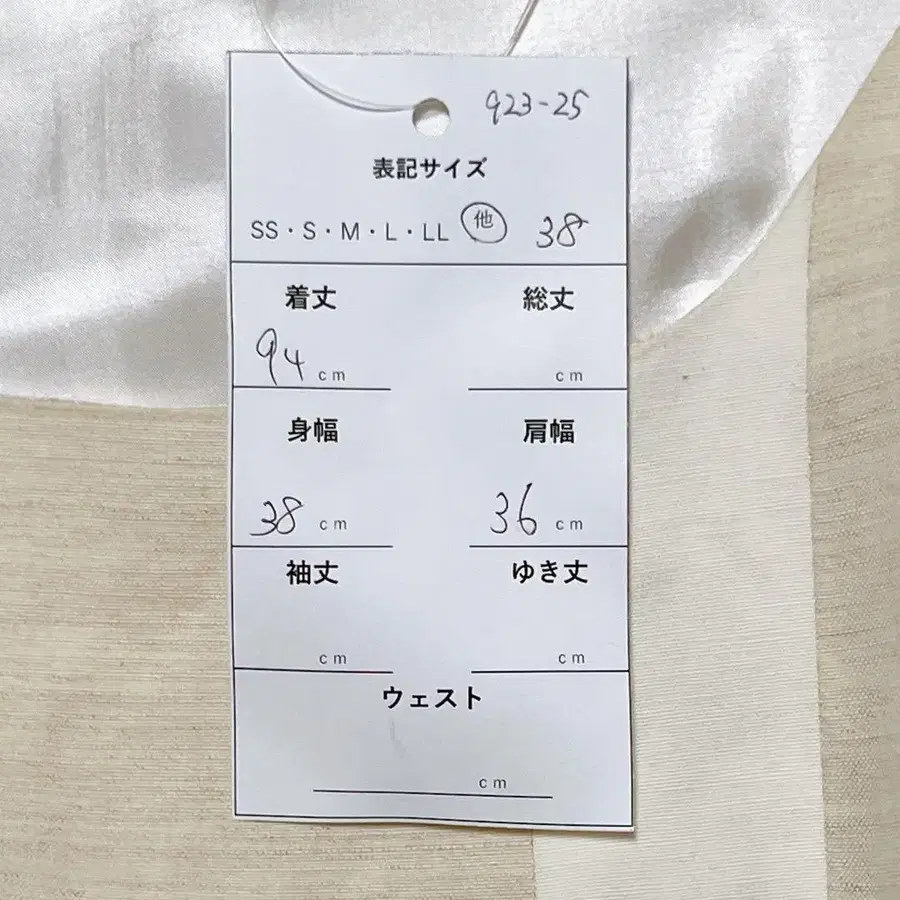 923-25
表記サイズ
SS・S・M・L・LL 他 38
着丈 総丈
94 cm cm
身幅 肩幅
38 cm 36 cm
袖丈 ゆき丈
cm cm
ウェスト
cm